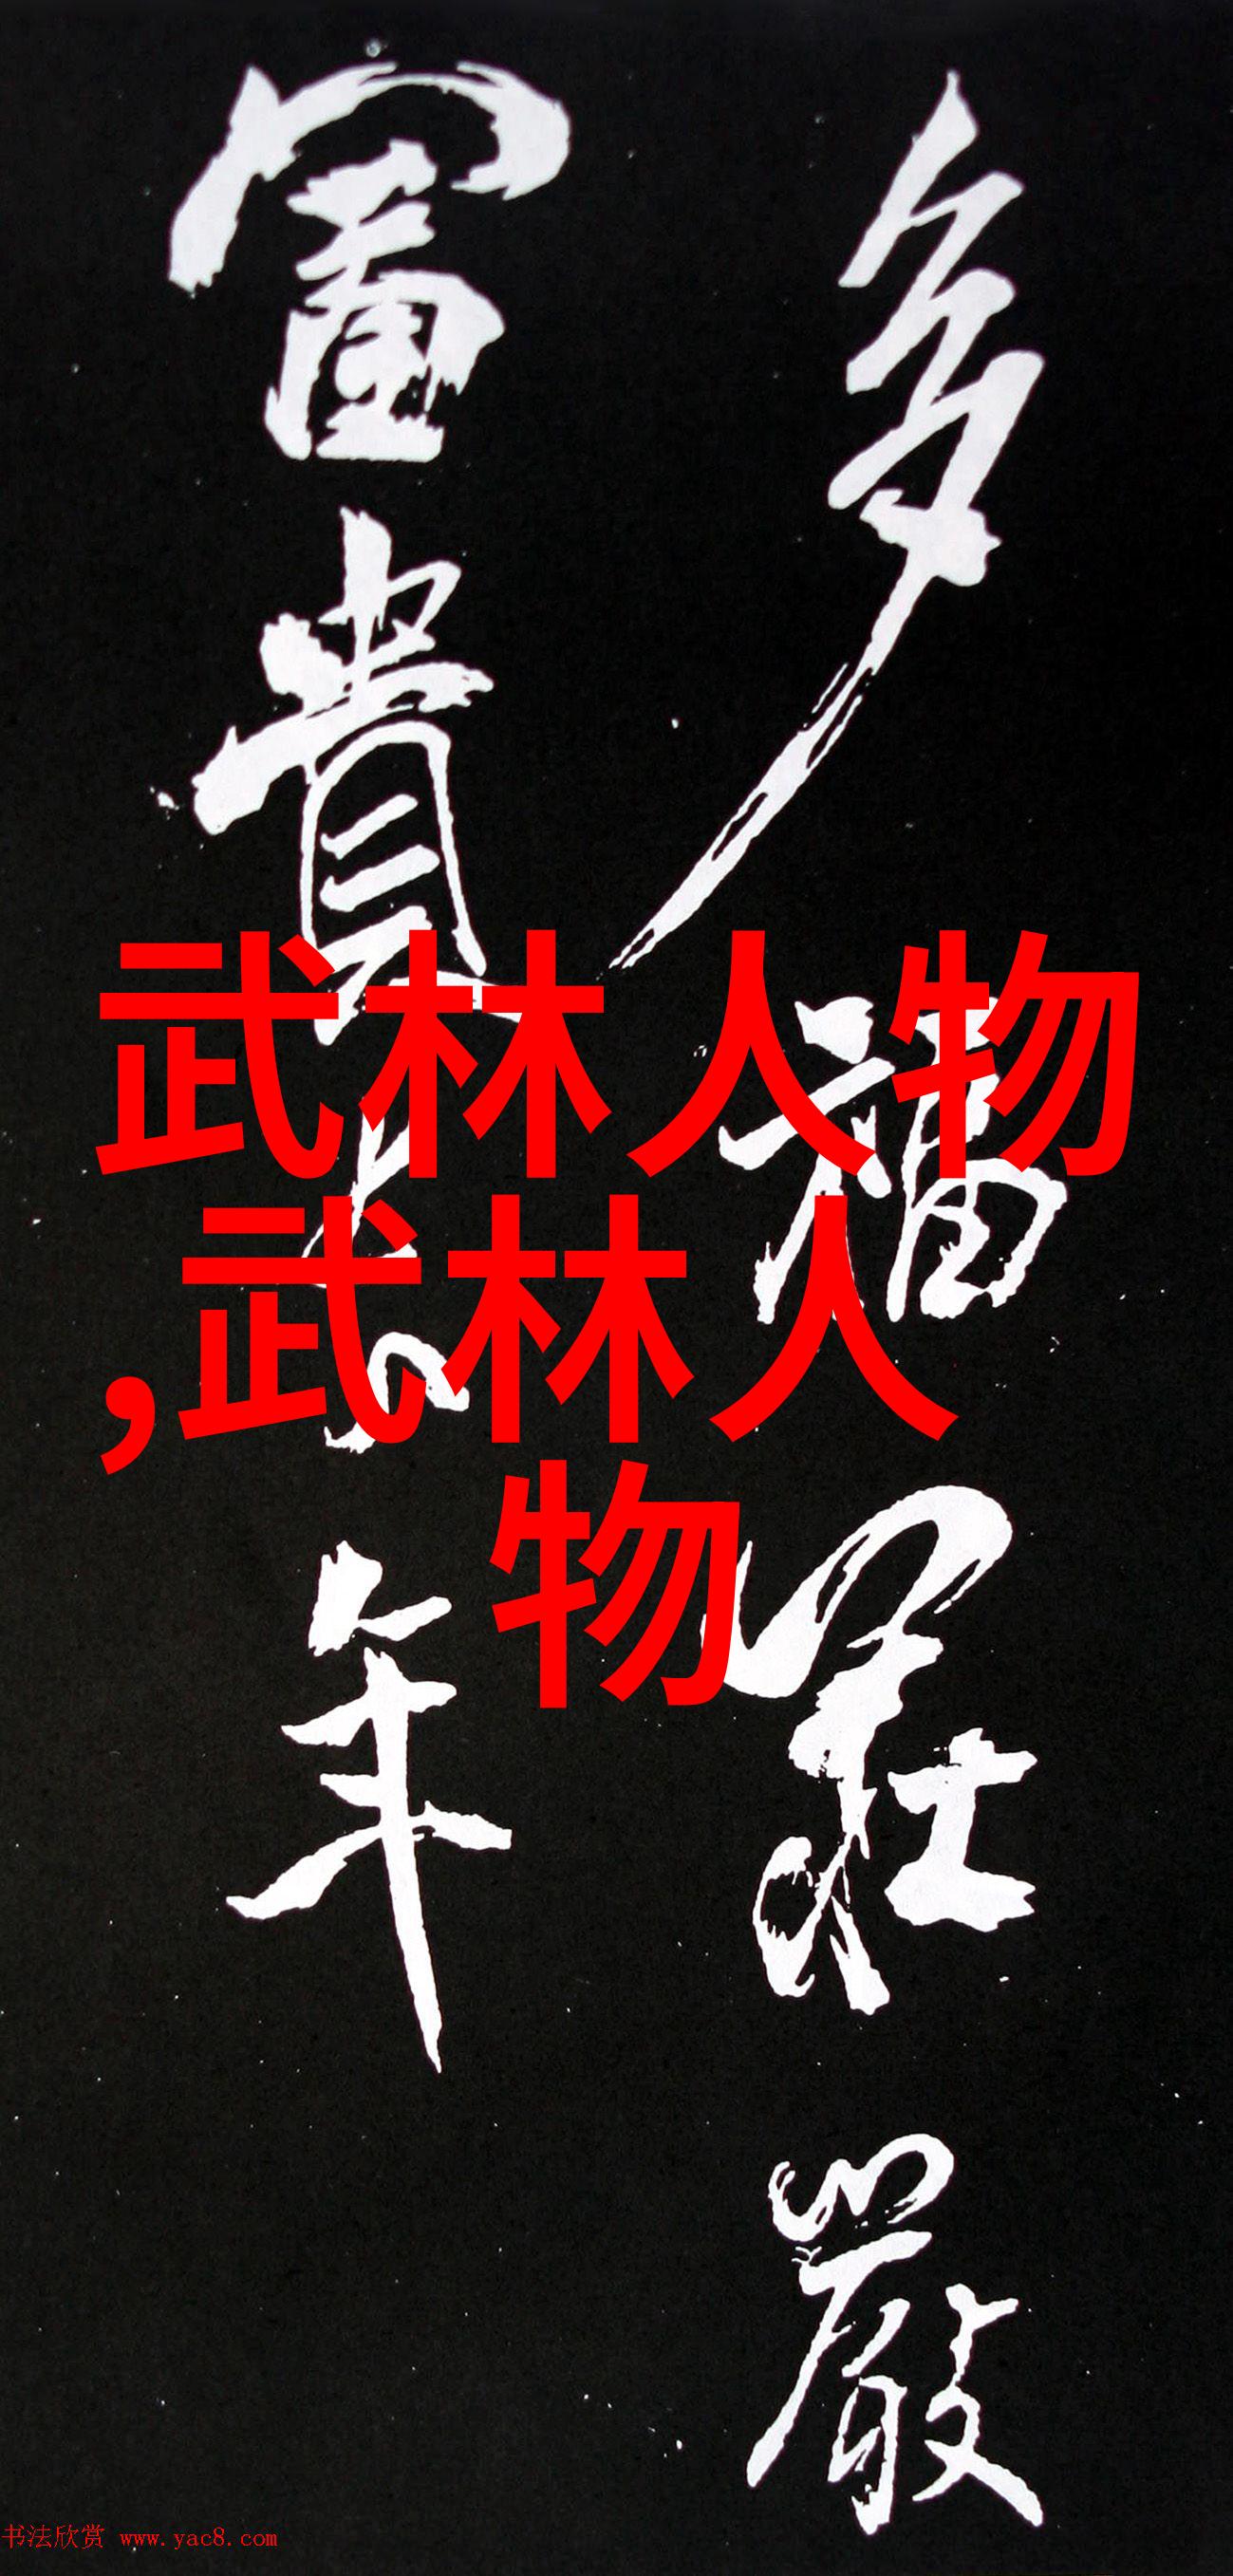 多福莊嚴
富貴大年
武林人物
,武林人
物
书法欣赏 www.yac8.com